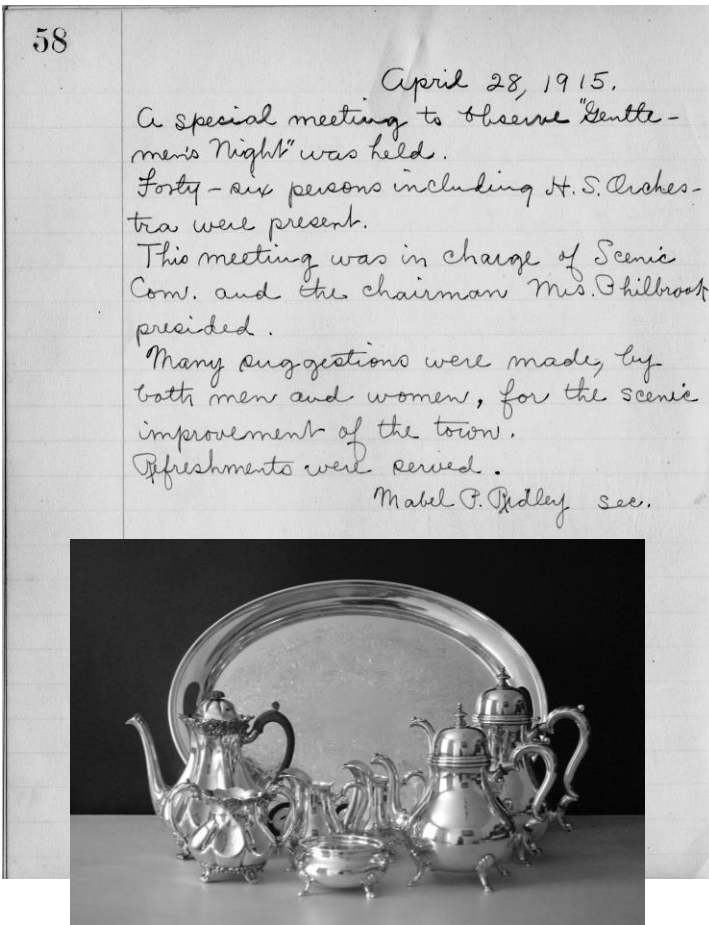 58
April 28, 1915.
A special meeting to observe "Gentle-
men's Night" was held.
Forty-six persons including H. S. Orches-
tra were present.
This meeting was in charge of Scenic
Com. and the chairman Mrs. Philbrook
presided.
Many suggestions were made, by
both men and women, for the scenic
improvement of the town.
Refreshments were served.
Mabel P. Ridley sec.